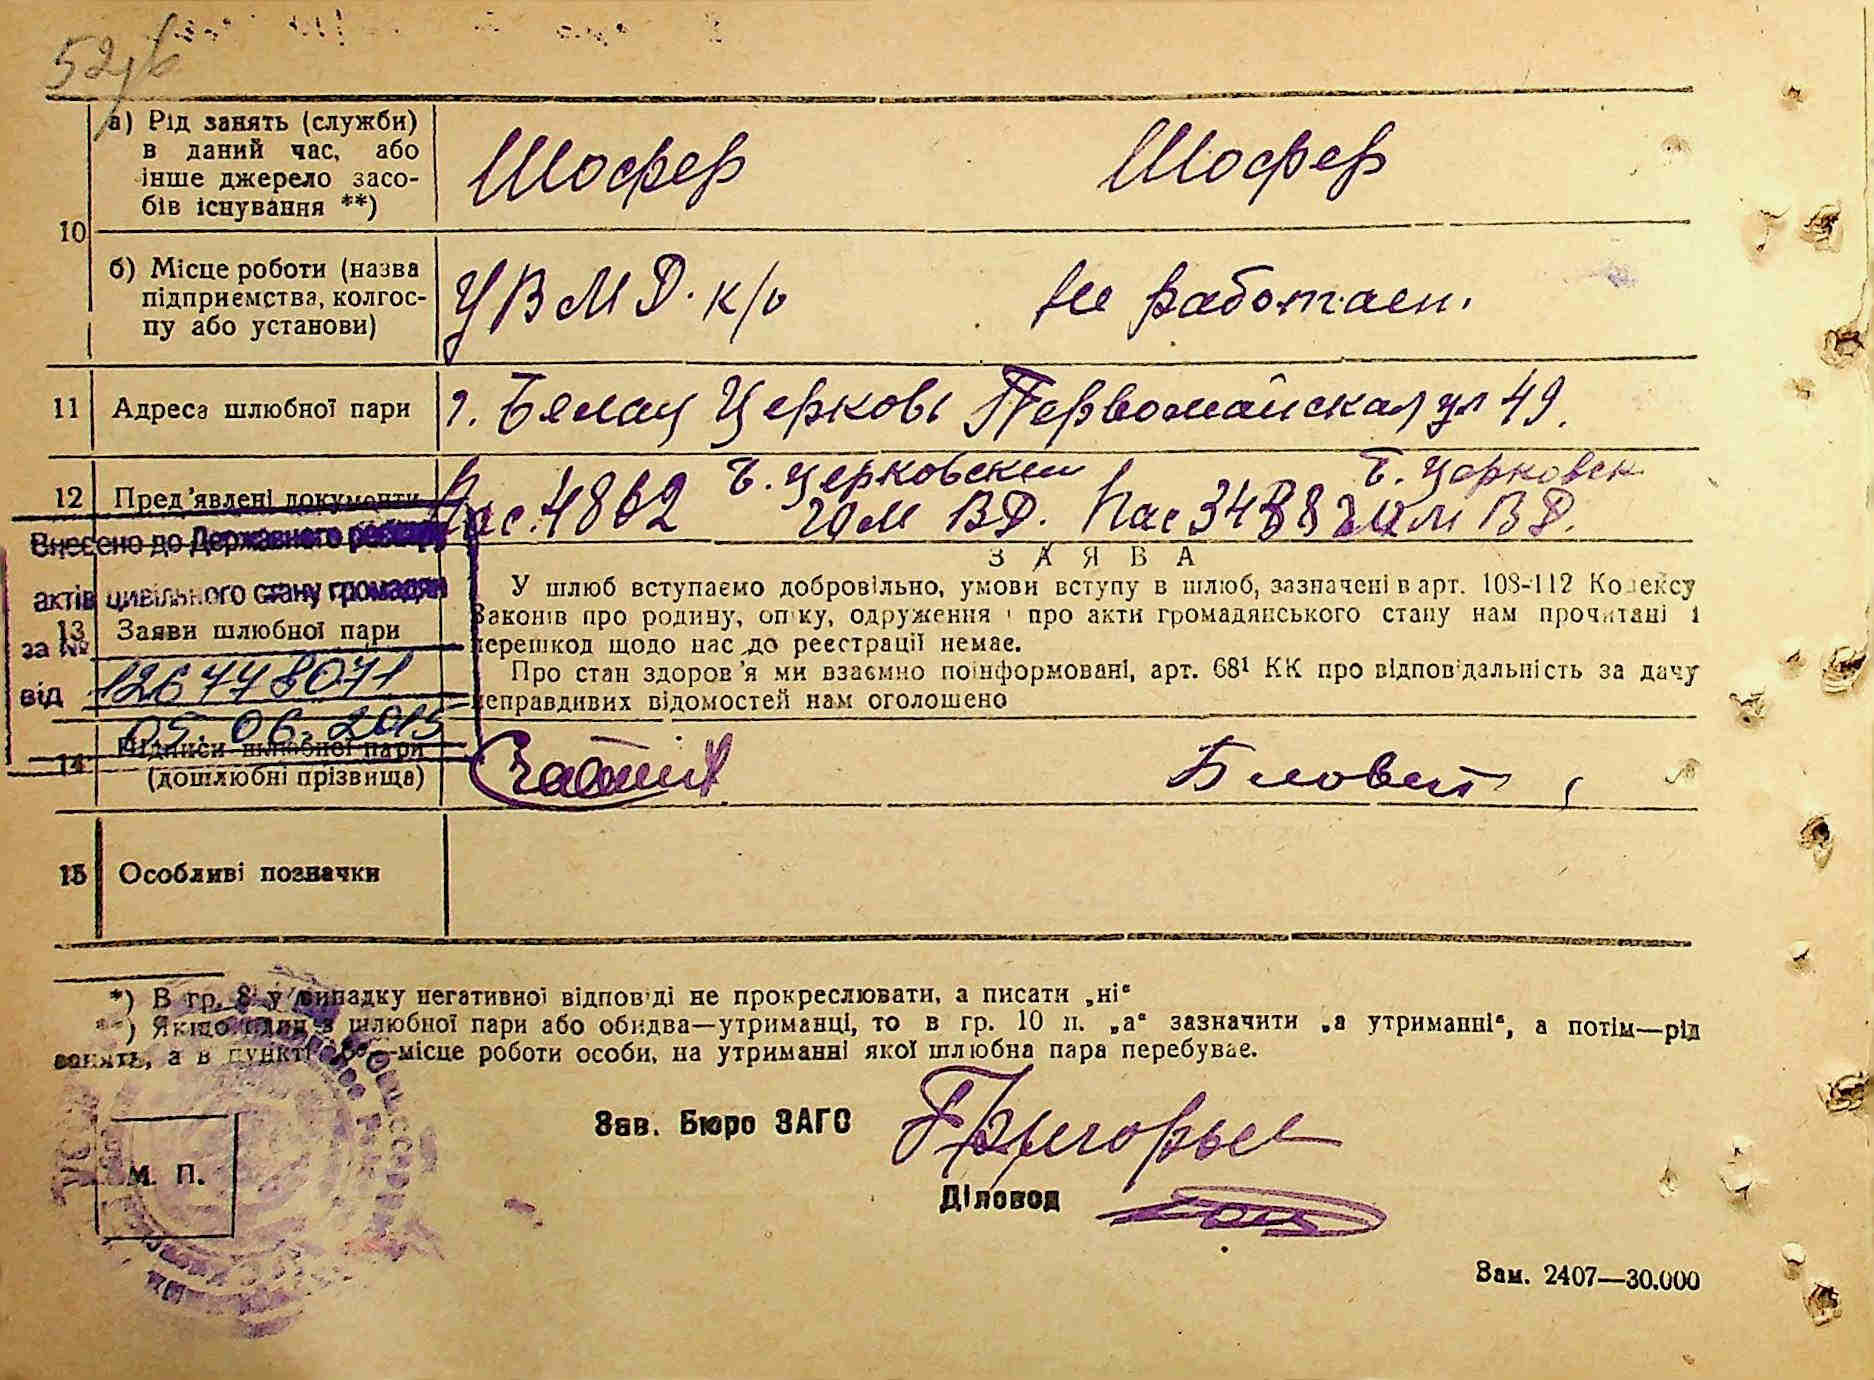 52/б
а) Рід занять (служби)
в даний час, або
інше джерело засо-
бів існування **)
Шофер Шофер
10
б) Місце роботи (назва
підприємства, колгос-
пу або установи)
УВМД. к/о Не работает.
11 Адреса шлюбної пари
г. Белая Церковь Первомайская ул 49.
12 Пред'явлені документи
Б. Церковским Б. Церковск
Пас. 4862 гом ВД. Пас 3488 гом ВД.
Внесено до Державного реєстру
актів цивільного стану громадян
за №
126448071
від
05.06.2015
ЗАЯВА
13 Заяви шлюбної пари
У шлюб вступаємо добровільно, умови вступу в шлюб, зазначені в арт. 108-112 Кодексу
Законів про родину, опіку, одруження і про акти громадянського стану нам прочитані і
перешкод щодо нас до реєстрації немає.
Про стан здоров'я ми взаємно поінформовані, арт. 68¹ КК про відповідальність за дачу
неправдивих відомостей нам оголошено
14 Підписи шлюбної пари
(дошлюбні прізвища)
15 Особливі позначки
*) В гр. 8 у випадку негативної відповіді не прокреслювати, а писати „ні“
**) Якщо один з шлюбної пари або обидва—утриманці, то в гр. 10 п. „а“ зазначити „а утриманні“, а потім—рід
занять, а в пункті „б“—місце роботи особи, на утриманні якої шлюбна пара перебуває.
Зав. Бюро ЗАГС
М. П.
Діловод
Зам. 2407—30.000